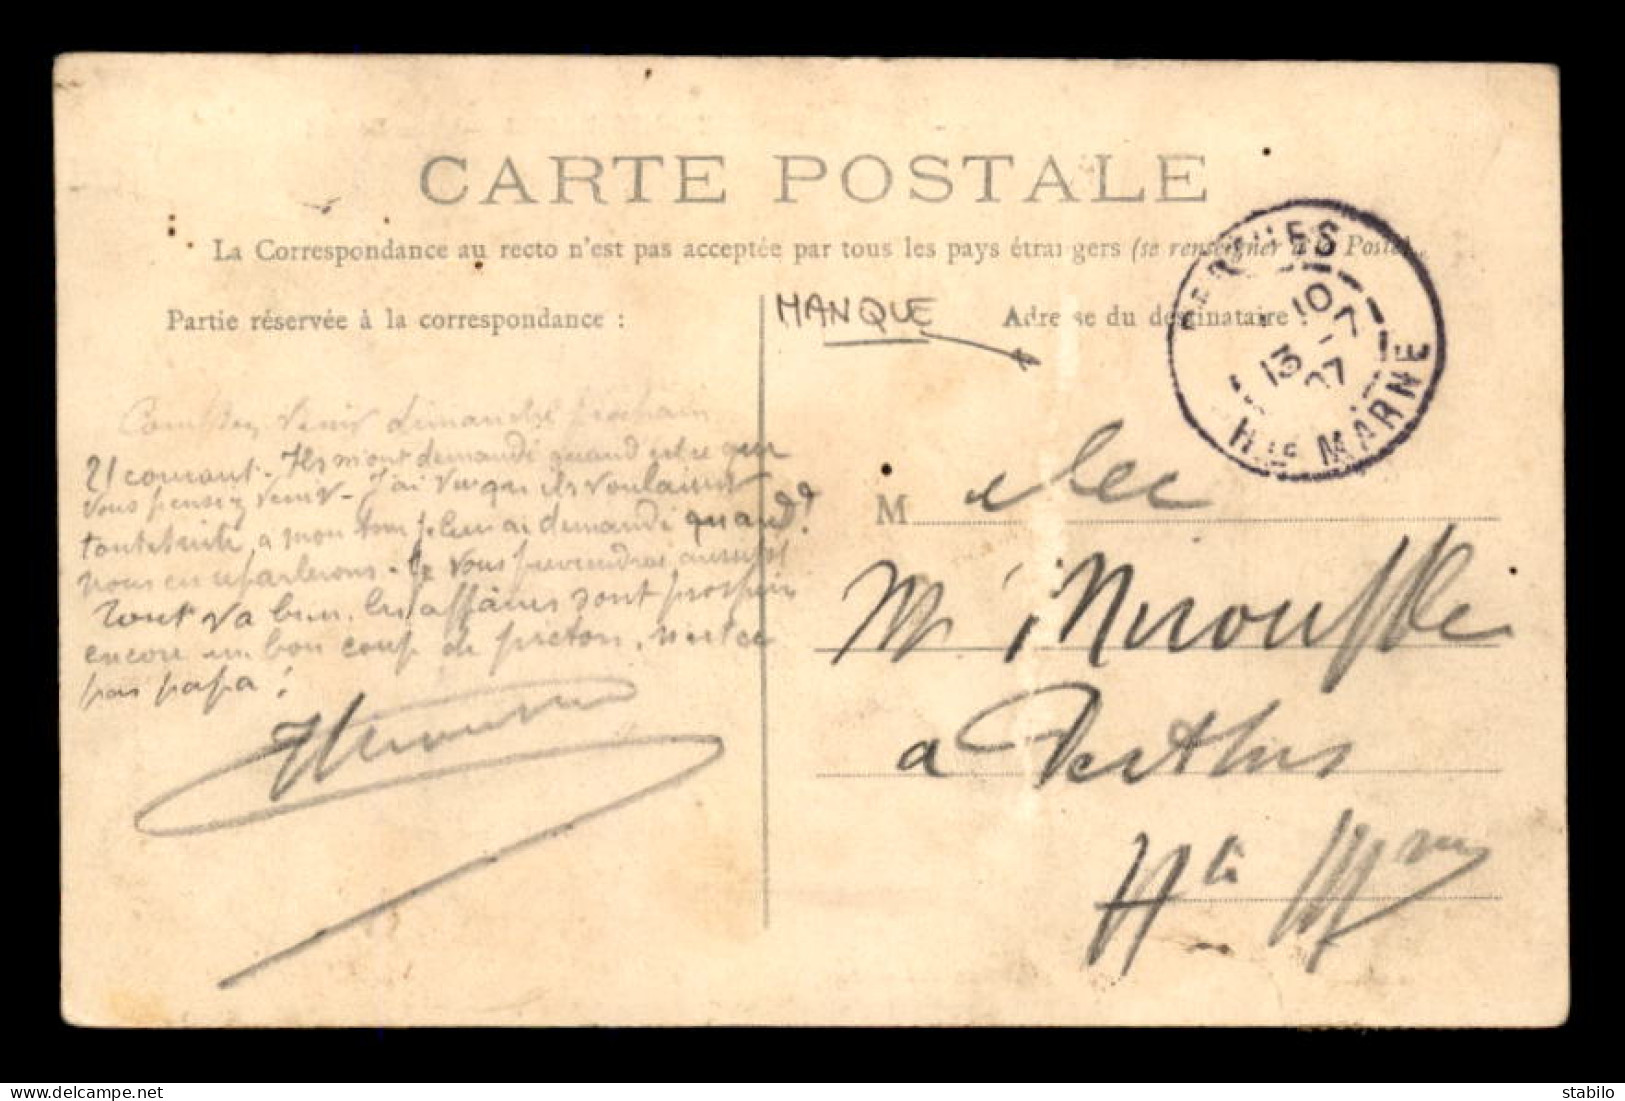 CARTE POSTALE
La Correspondance au recto n'est pas acceptée par tous les pays étrangers (se renseigner à la Poste).
Partie réservée à la correspondance :
MANQUE
Adresse du destinataire :
PERTHES
10
13 - 7
07
Hte MARNE
venir dimanche prochain
21 courant. Ils m'ont demandé quand est ce que
vous pensez venir. J'ai vu qu'ils voulaient
tout de suite, a mon tour je leur ai demandé quand?
nous en reparlerons. Je vous previendrai aussitot
Tout va bien, les affaires sont
encore un bon coup de piston, n'est ce
pas papa!
M
a Perthes
Hte Marne
stabilo